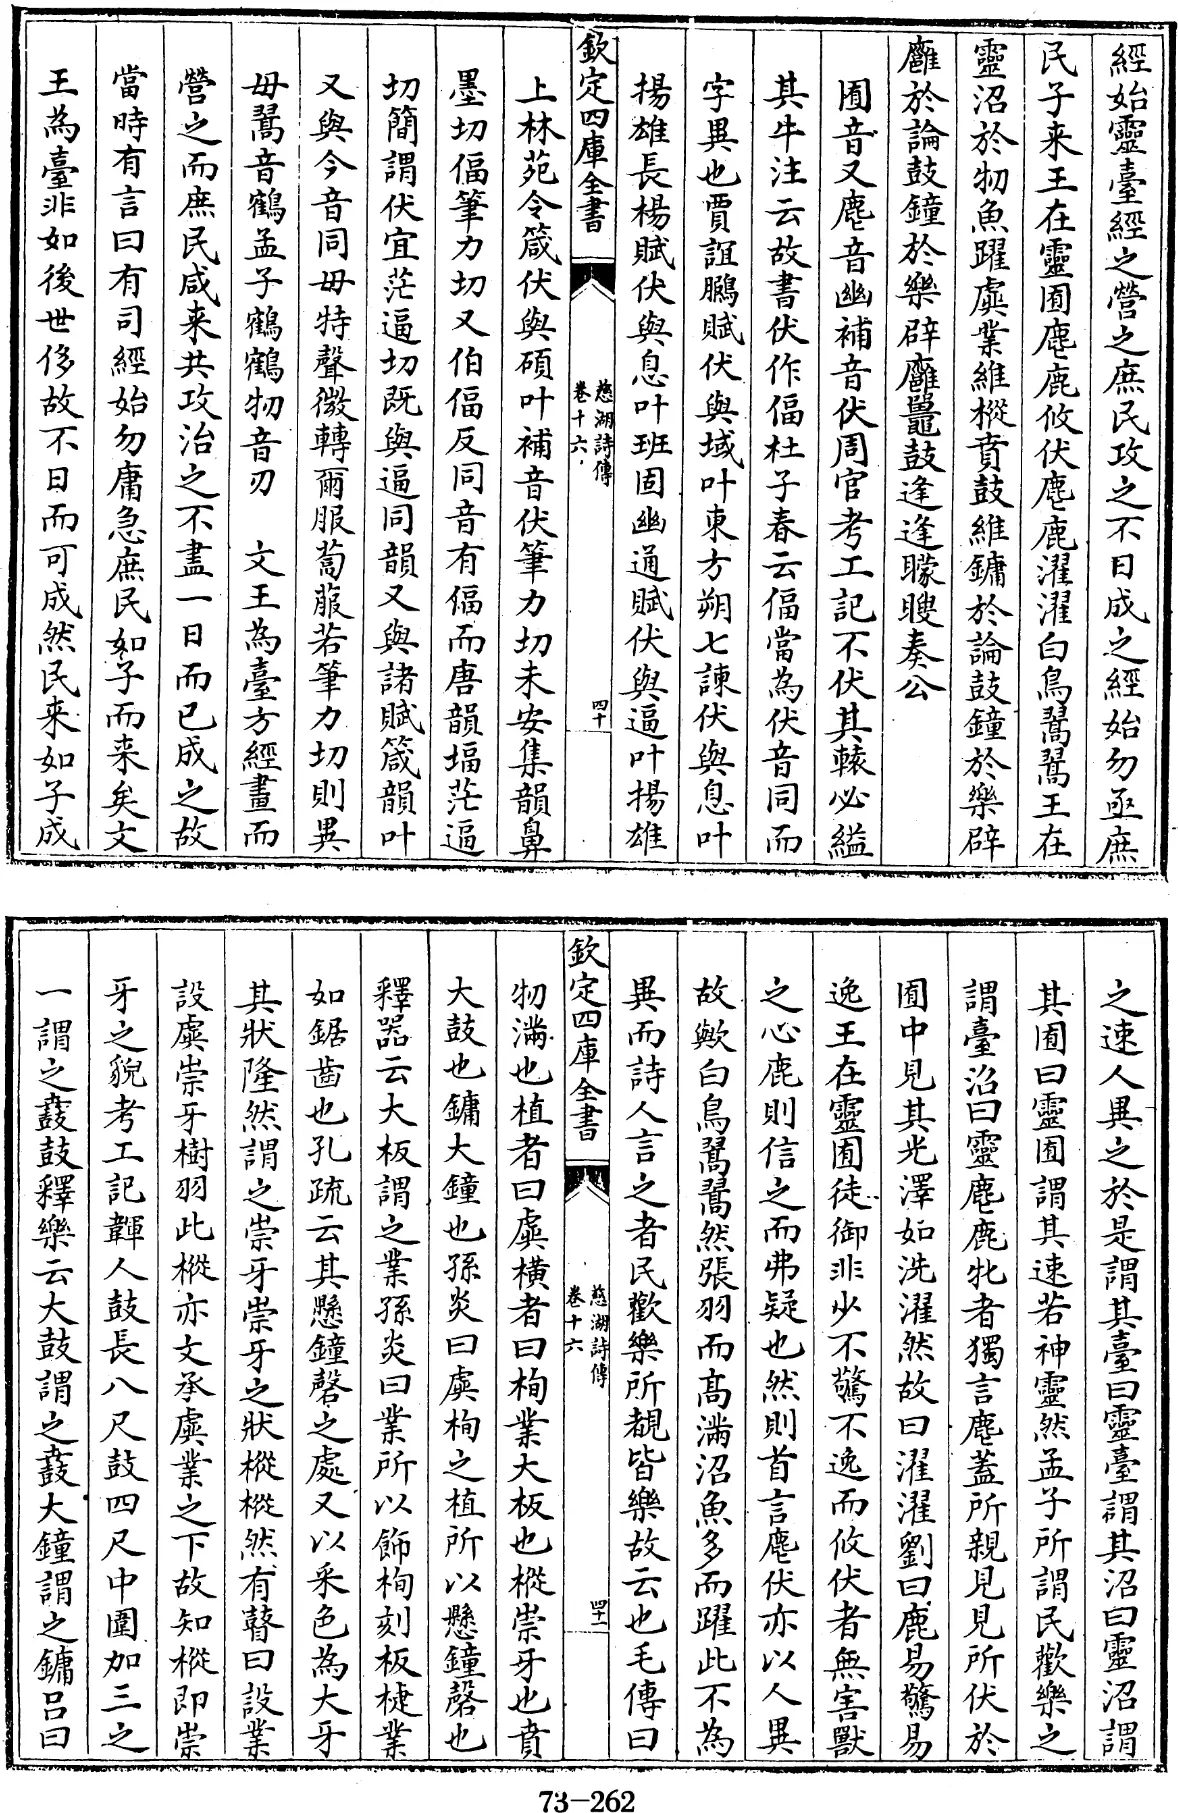 經始靈臺經之營之庶民攻之不日成之經始勿亟庶
民子來王在靈囿麀鹿攸伏麀鹿濯濯白鳥翯翯王在
靈沼於牣魚躍虡業維樅賁鼓維鏞於論鼓鐘於樂辟
廱於論鼓鐘於樂辟廱鼉鼓逢逢矇瞍奏公
囿音又麀音幽補音伏周官考工記不伏其轅必縊
其牛注云故書伏作偪杜子春云偪當為伏音同而
字異也賈誼鵩賦伏與域叶東方朔七諫伏與息叶
揚雄長楊賦伏與息叶班固幽通賦伏與逼叶揚雄
欽定四庫全書
慈湖詩傳
卷十六
四十
上林苑令箴伏與碩叶補音伏筆力切未安集韻鼻
墨切偪筆力切又伯偪反同音有偪而唐韻堛茫逼
切簡謂伏宜茫逼切既與逼同韻又與諸賦箴韻叶
又與今音同毋特聲微轉爾服蔔菔若筆力切則異
毋翯音鶴孟子鶴鶴牣音刃　文王為臺方經畫而
營之而庶民咸来共攻治之不盡一日而已成之故
當時有言曰有司經始勿庸急庶民如子而来矣文
王為臺非如後世侈故不日而可成然民来如子成
之速人異之於是謂其臺曰靈臺謂其沼曰靈沼謂
其囿曰靈囿謂其速若神靈然孟子所謂民歡樂之
謂臺沼曰靈麀鹿牝者獨言麀蓋所親見見所伏於
囿中見其光澤如洗濯然故曰濯濯劉曰鹿易驚易
逸王在靈囿徒御非少不驚不逸而攸伏者無害獸
之心鹿則信之而弗疑也然則首言麀伏亦以人異
故歟白鳥翯翯然張羽而高滿沼魚多而躍此不為
異而詩人言之者民歡樂所覩皆樂故云也毛傳曰
欽定四庫全書
慈湖詩傳
卷十六
四十一
牣滿也植者曰虡橫者曰栒業大板也樅崇牙也賁
大鼓也鏞大鐘也孫炎曰虡栒之植所以懸鐘磬也
釋器云大板謂之業孫炎曰業所以飾栒刻板㨗業
如鋸齒也孔疏云其懸鐘磬之處又以采色為大牙
其狀隆然謂之崇牙崇牙之狀樅樅然有瞽曰設業
設虡崇牙樹羽此樅亦文承虡業之下故知樅即崇
牙之貌考工記韗人鼓長八尺鼓四尺中圍加三之
一謂之鼖鼓釋樂云大鼓謂之鼖大鐘謂之鏞吕曰
73-262